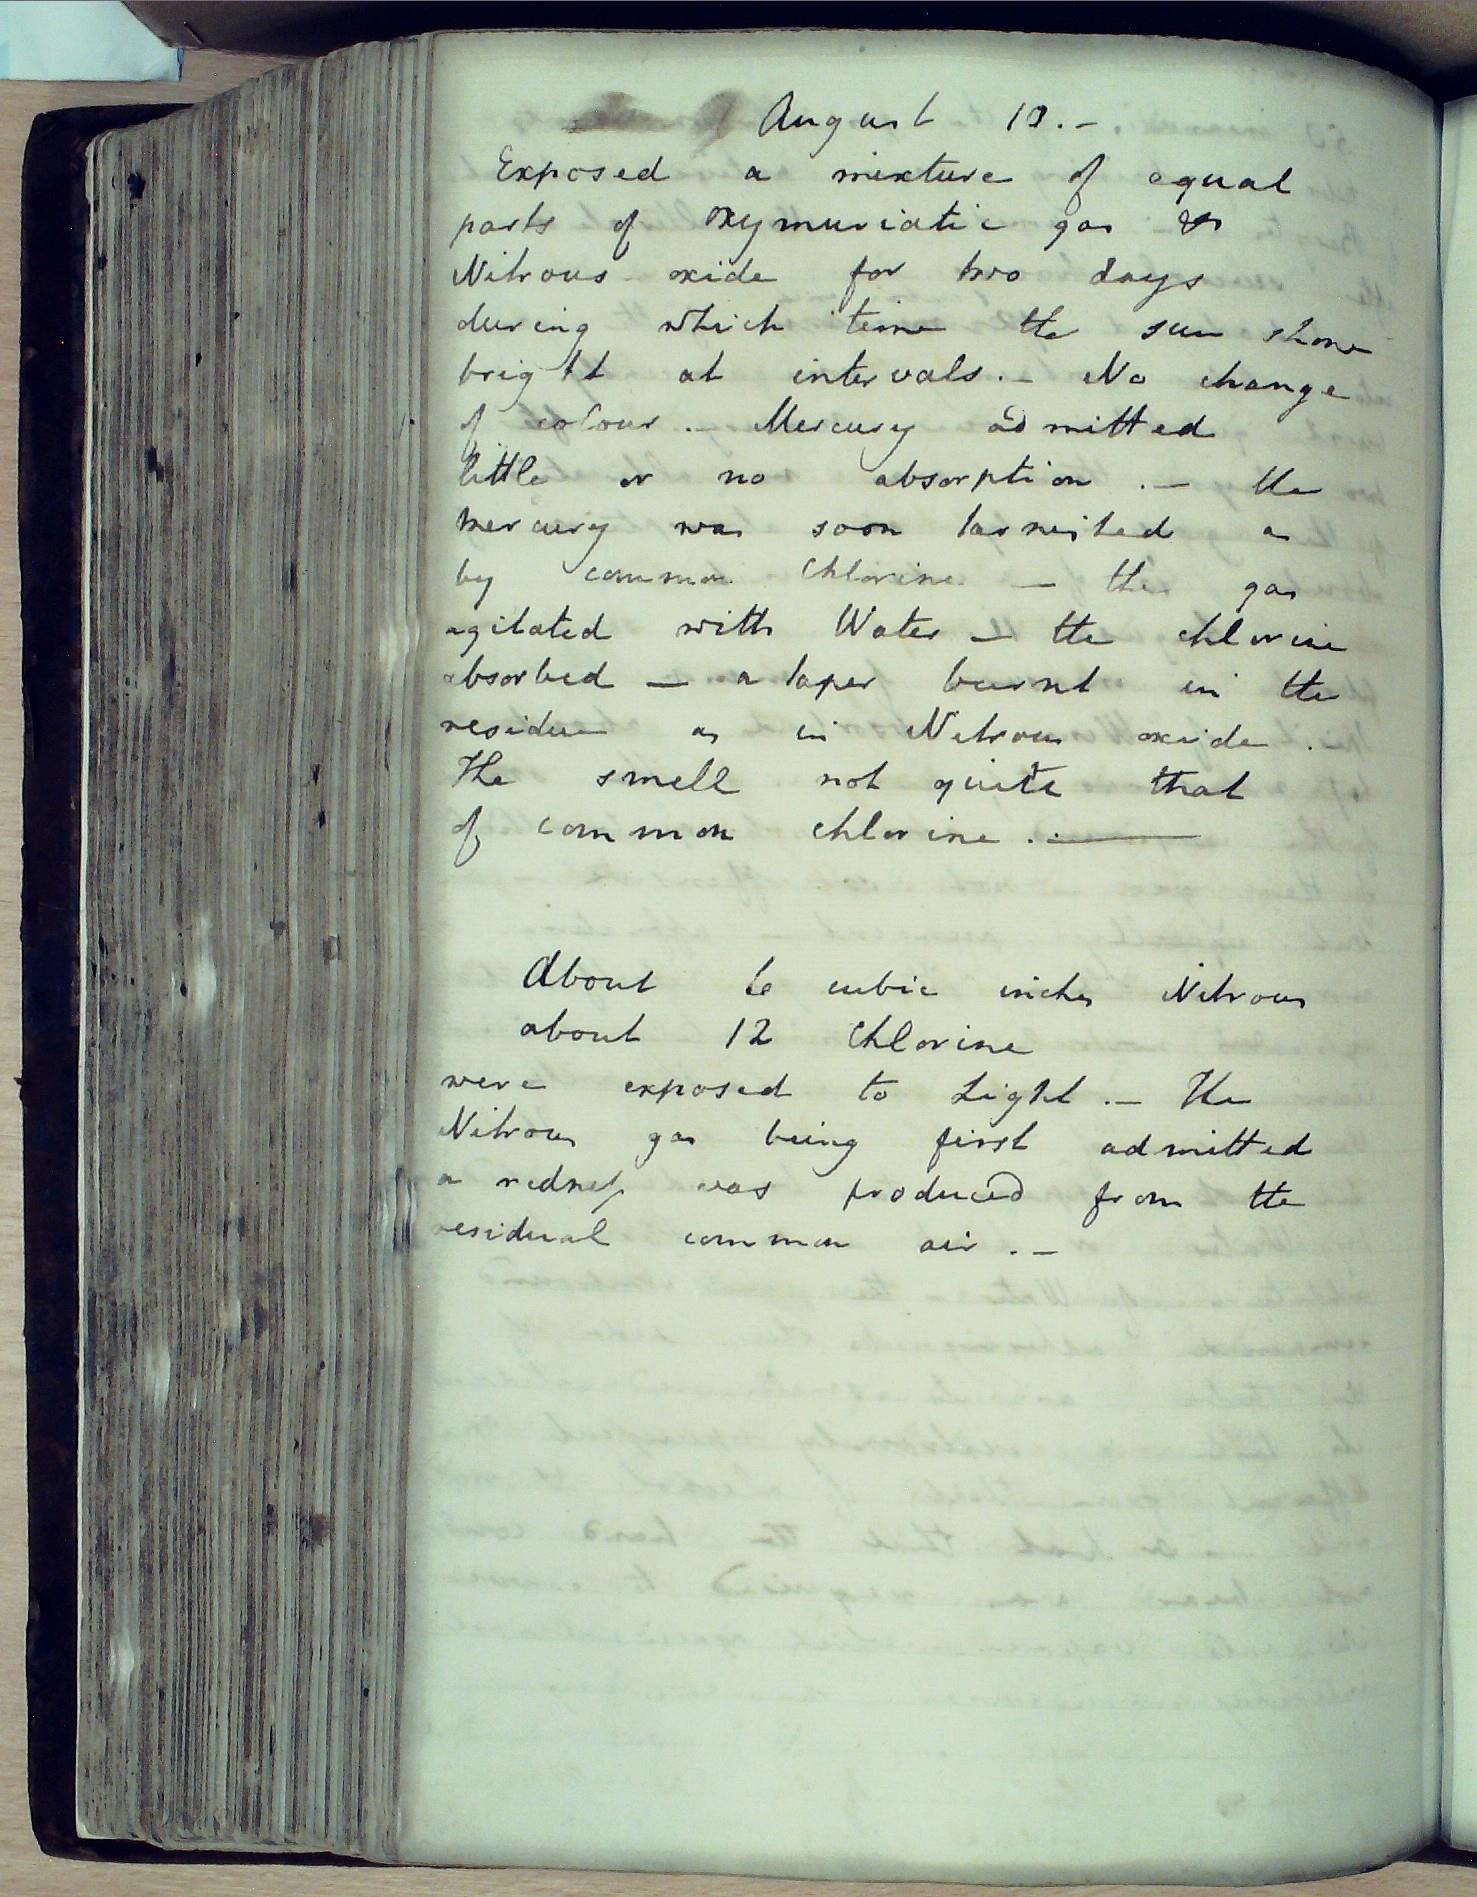 August 10.-
Exposed a mixture of equal
parts of oxymuriatic gas &
Nitrous oxide for two days
during which time the sun shone
bright at intervals.- No change
of colour.- Mercury admitted
little or no absorption.- the
mercury was soon tarnished as
by common Chlorine - the gas
agitated with Water - the chlorine
absorbed - a taper burnt in the
residue as in Nitrous oxide.
The smell not quite that
of common chlorine.-
About 6 cubic inches Nitrous
about 12 Chlorine
were exposed to Light.- The
Nitrous gas being first admitted
a redness was produced from the
residual common air.-